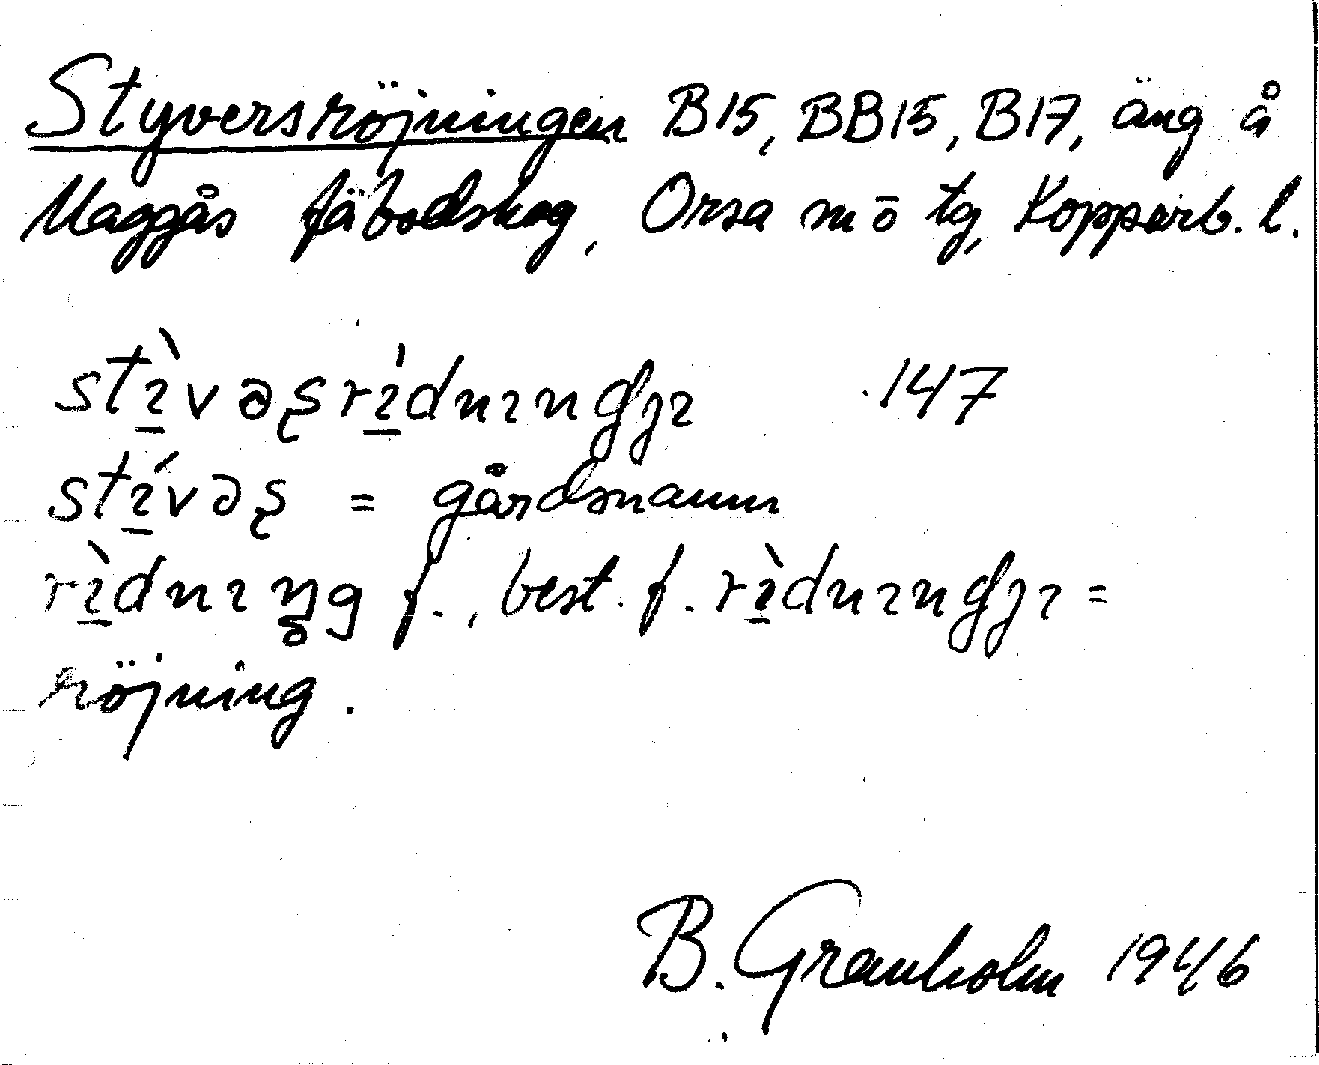 Styversröjningen B15, BB15, B17, äng å
Maggås fäbodskog, Orsa sn ö tg, Kopparb. l.
stɪ̱̀vəʂrɪ̱́dnɪnɠȷɪ 147
stɪ̱́vəʂ = gårdsnamn
rɪ̱̀dnɪŋ̥g f., best. f. rɪ̱̀dnɪnɠȷɪ =
röjning.
B. Granholm 1946